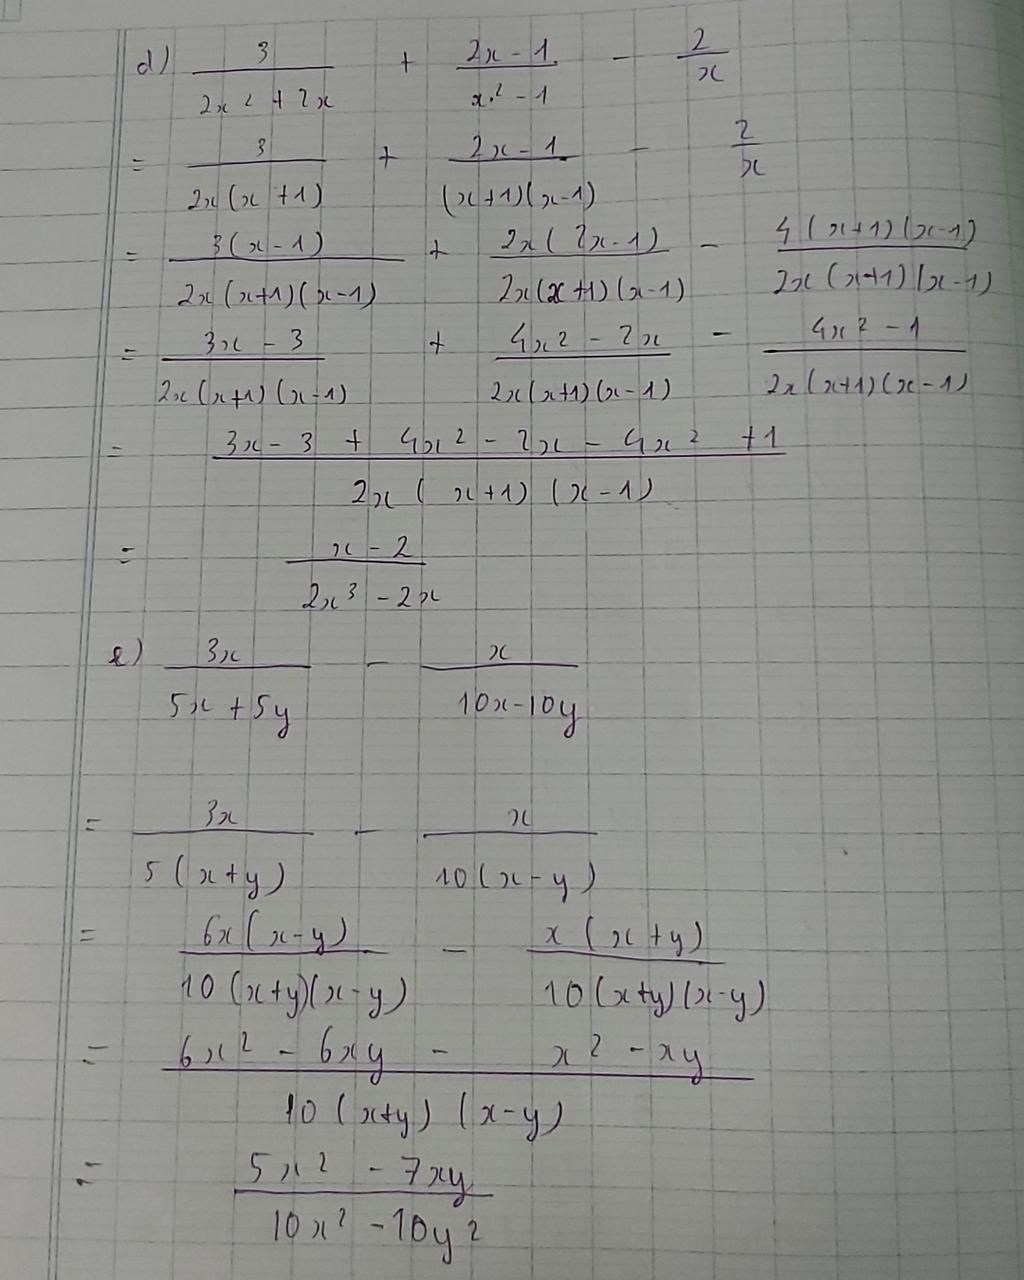 d) 3/(2x² + 2x) + (2x - 1)/(x² - 1) - 2/x
= 3/(2x(x + 1)) + (2x - 1)/((x+1)(x-1)) - 2/x
= 3(x - 1)/(2x(x+1)(x-1)) + 2x(2x-1)/(2x(x+1)(x-1)) - 4(x+1)(x-1)/(2x(x+1)(x-1))
= (3x - 3)/(2x(x+1)(x-1)) + (4x² - 2x)/(2x(x+1)(x-1)) - (4x² - 1)/(2x(x+1)(x-1))
= (3x - 3 + 4x² - 2x - 4x² + 1)/(2x(x+1)(x-1))
= (x - 2)/(2x³ - 2x)
e) 3x/(5x + 5y) - x/(10x-10y)
= 3x/(5(x+y)) - x/(10(x-y))
= 6x(x-y)/(10(x+y)(x-y)) - x(x+y)/(10(x+y)(x-y))
= (6x² - 6xy - x² - xy)/(10(x+y)(x-y))
= (5x² - 7xy)/(10x² - 10y²)